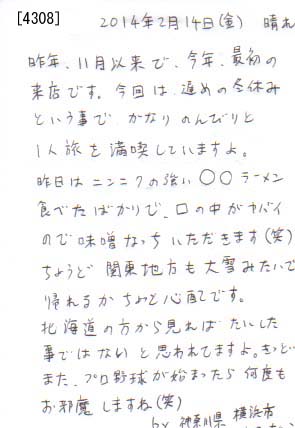 [4308]
2014年2月14日(金) 晴れ
昨年、11月以来で、今年、最初の
来店です。今回は、遅めの冬休み
という事で かなり のんびりと
1人旅を満喫していますよ。
昨日はニンニクの強い○○ラーメン
食べたばかりで、口の中がヤバイ
ので味噌なっち いただきます(笑)
ちょうど 関東地方も 大雪みたいで
帰れるか ちょっと心配です。
北海道の方から見れば たいした
事ではない と思われてますよ。きっと…
また、プロ野球が始まったら 何度も
お邪魔 しますね(笑)
by 神奈川県 横浜市